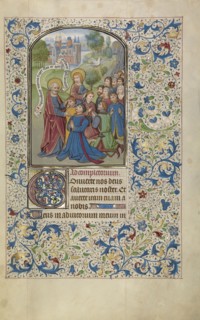 Ad completorium.
Conuerte nos deus
salutaris noster. Et
auerte iram tuam a
nobis
Deus in adiutorium meum in